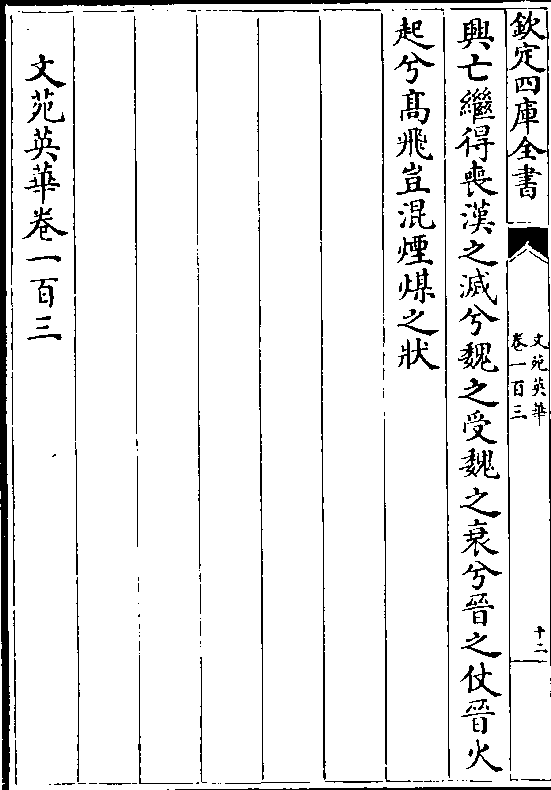 欽定四庫全書
文苑英華
卷一百三
十二
興亡繼得喪漢之滅兮魏之受魏之衰兮晉之仗晉火
起兮高飛豈混煙煤之狀
文苑英華卷一百三